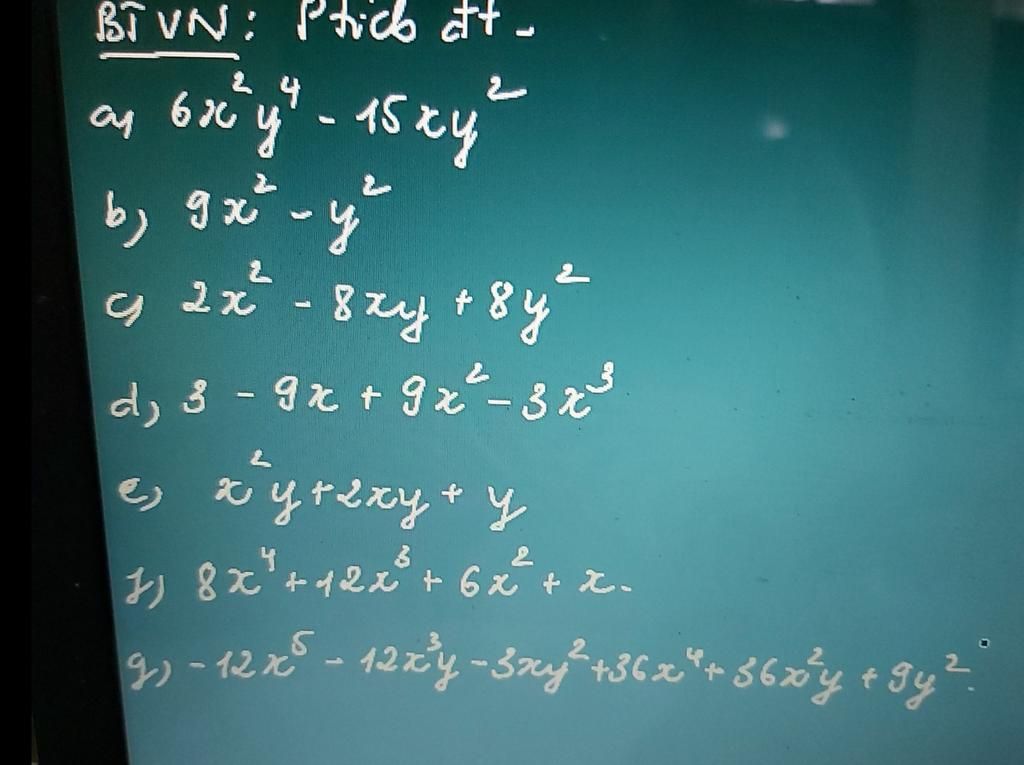 BTVN: Ptích đt -
a) 6x²y⁴ - 15xy²
b) 9x² - y²
c) 2x² - 8xy + 8y²
d) 3 - 9x + 9x² - 3x³
e) x²y + 2xy + y
f) 8x⁴ + 12x³ + 6x² + x.
g) -12x⁵ - 12x³y - 3xy² + 36x⁴ + 36x²y + 9y².